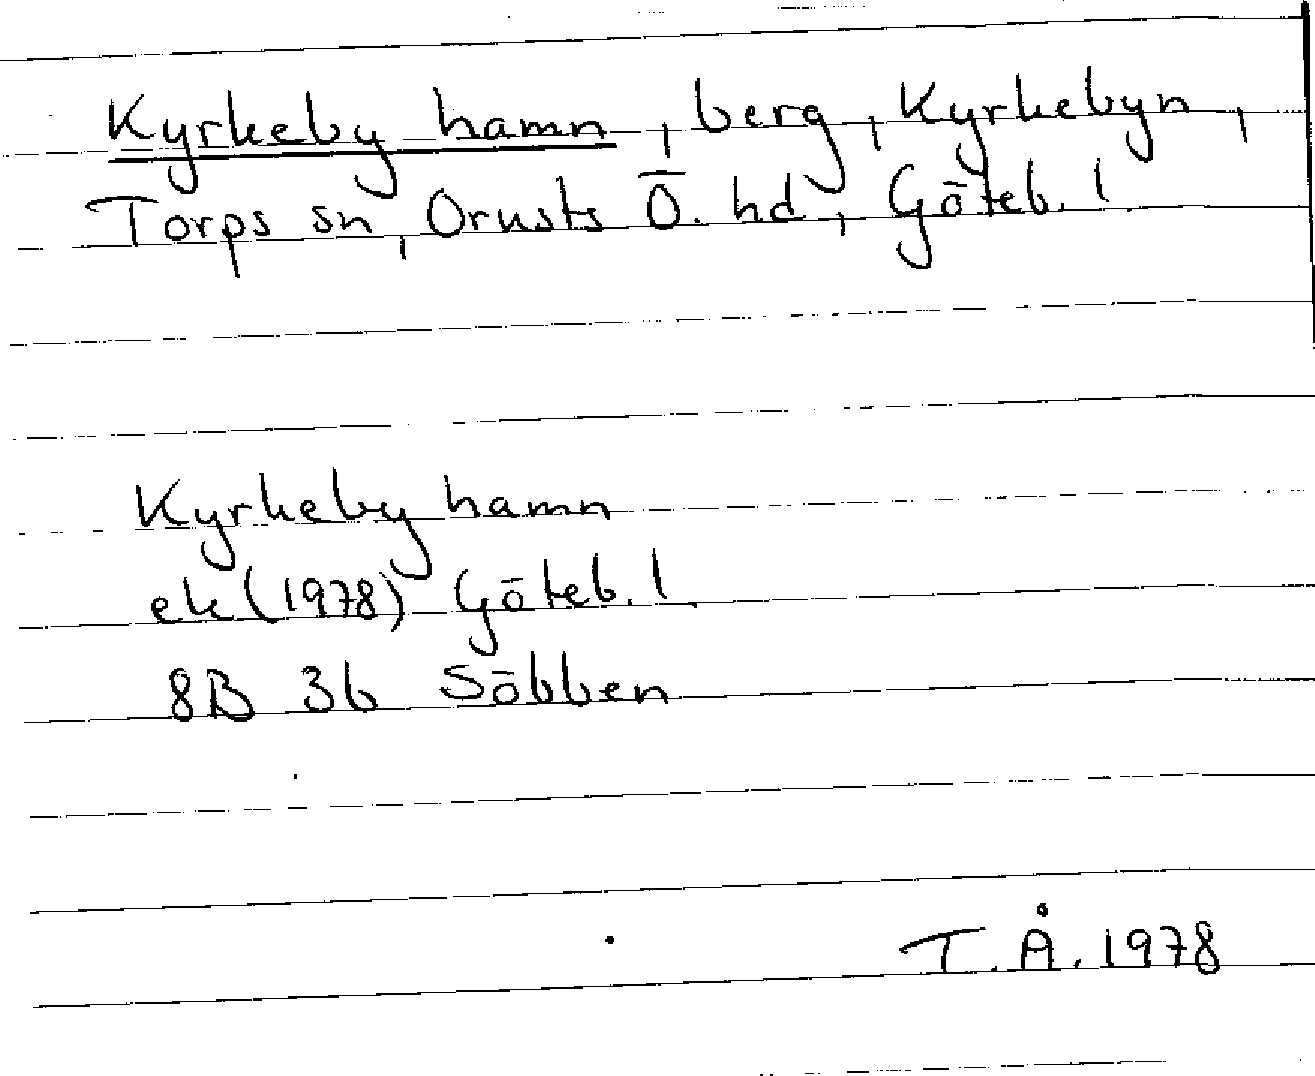 Kyrkeby hamn, berg, Kyrkebyn,
Torps sn, Orusts Ö. hd, Göteb. l
Kyrkeby hamn
ek (1978) Göteb. l
8B 3b Söbben
T. Å. 1978